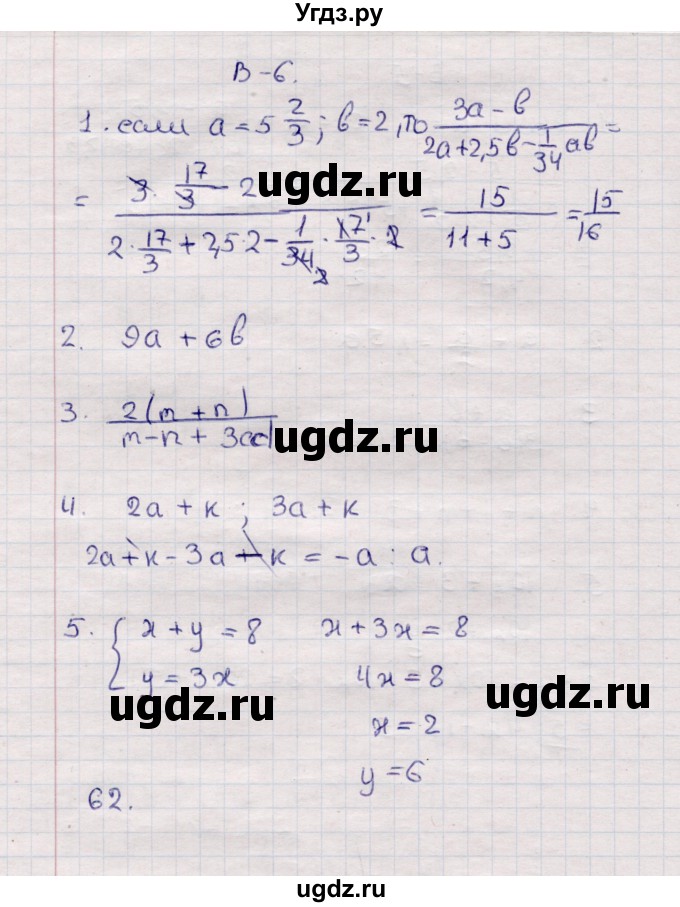 Угдз.ру
В-6.
1. если a = 5 2/3; в = 2, то (3a - в)/(2a + 2,5в - 1/34 aв) =
= (3 · 17/3 - 2)/(2 · 17/3 + 2,5 · 2 - 1/34 · 17/3 · 2) = 15/(11 + 5) = 15/16
ugdz.ru
2. 9a + 6в
3. 2(m + n)/(m - n + 3cd)
ugdz.ru
4. 2a + к ; 3a + к
2a + к - 3a + к = - a : a.
5. { x + y = 8 x + 3x = 8
y = 3x 4x = 8
ugdz.ru ugdz.ru
x = 2
y = 6
62.
ugdz.ru